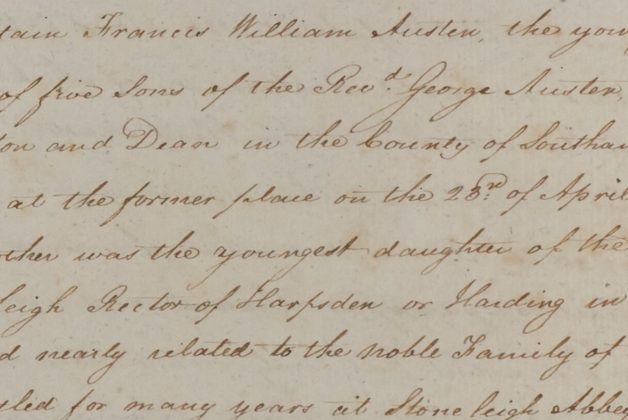 tain Francis William Austen, the youn
of five Sons of the Revd. George Austen,
ton and Dean in the County of Southam
at the former place on the 23rd of April
other was the youngest daughter of the
Leigh Rector of Harpsden or Harding in
d nearly related to the noble Family of
yled for many years at Stoneleigh Abbe